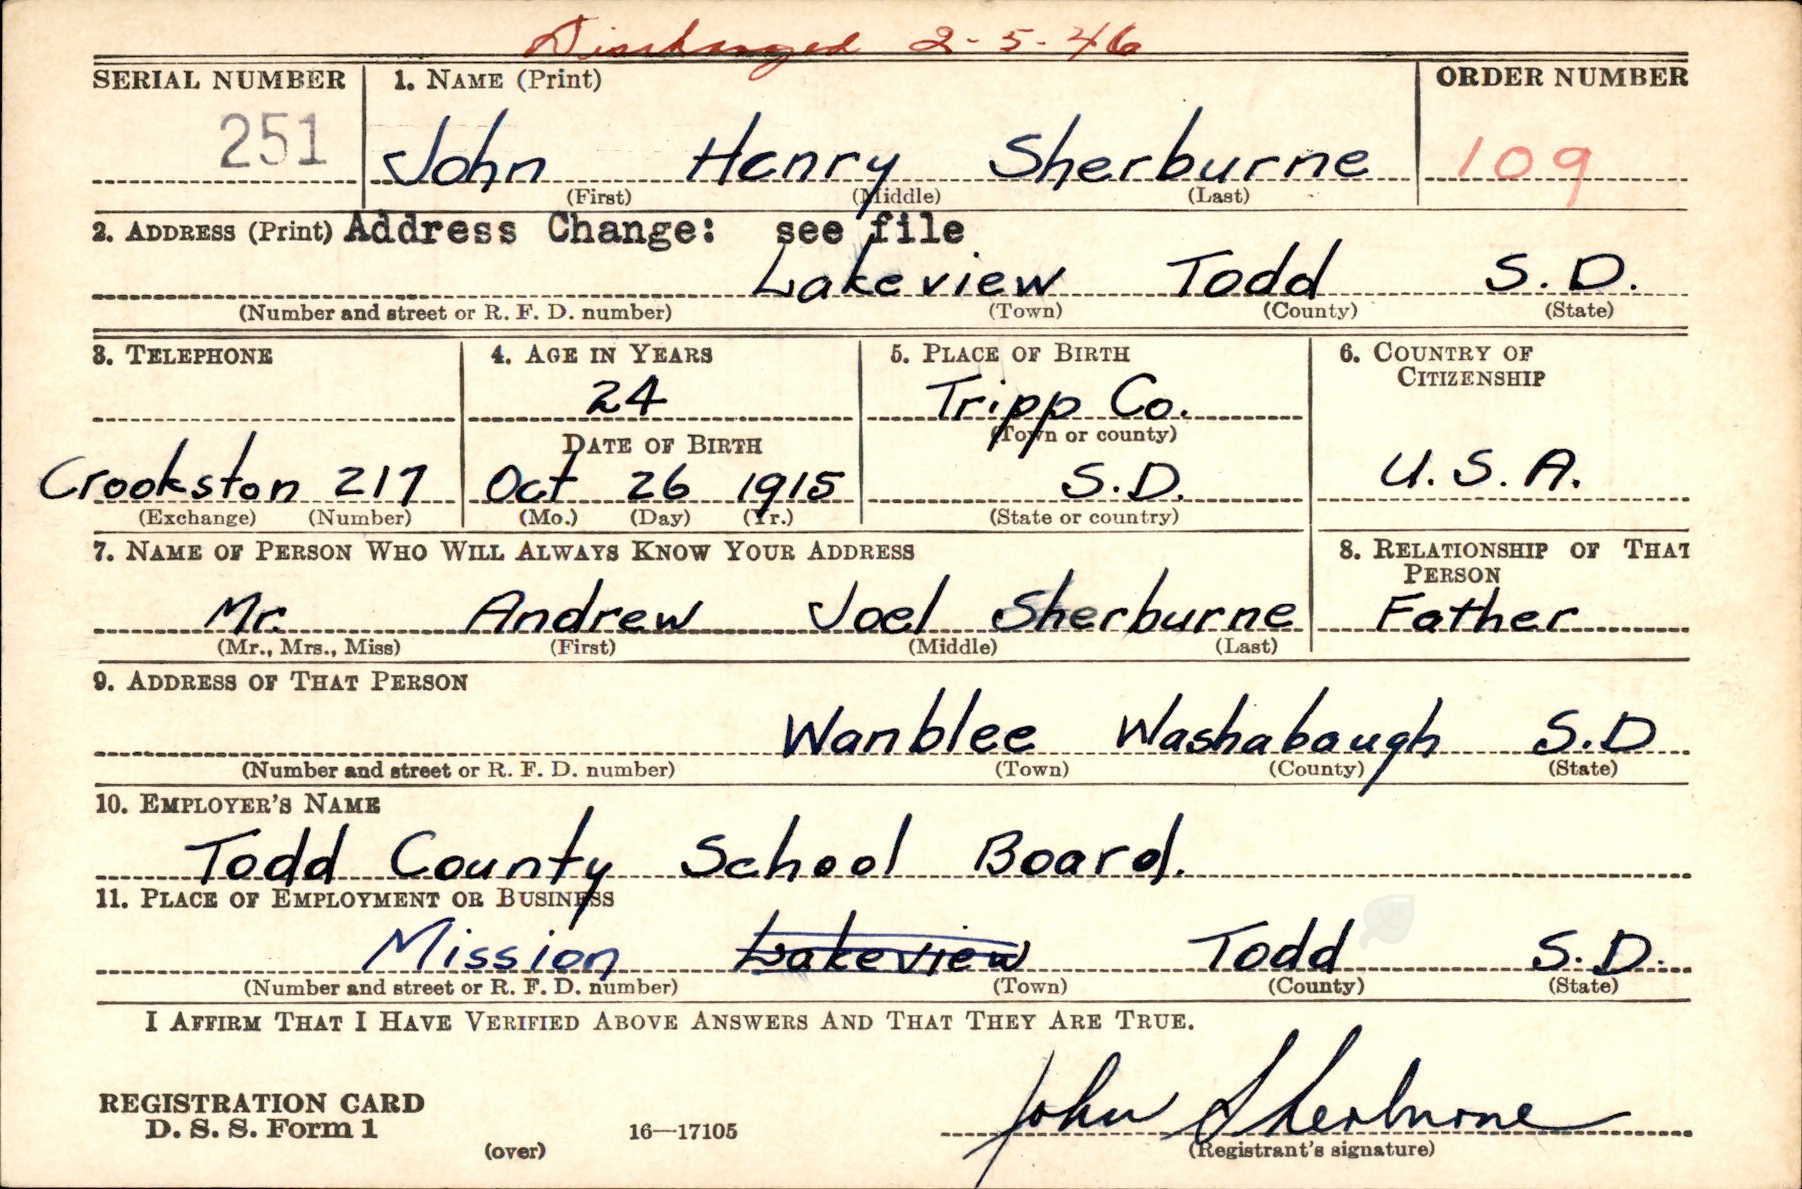 Discharged 2-5-46
SERIAL NUMBER 1. NAME (Print) ORDER NUMBER
251 John Henry Sherburne 109
(First) (Middle) (Last)
2. ADDRESS (Print) Address Change: see file
Lakeview Todd S.D.
(Number and street or R. F. D. number) (Town) (County) (State)
3. TELEPHONE 4. AGE IN YEARS 5. PLACE OF BIRTH 6. COUNTRY OF
CITIZENSHIP
24 Tripp Co.
DATE OF BIRTH (Town or county)
Crookston 217 Oct 26 1915 S.D. U.S.A.
(Exchange) (Number) (Mo.) (Day) (Yr.) (State or country)
7. NAME OF PERSON WHO WILL ALWAYS KNOW YOUR ADDRESS 8. RELATIONSHIP OF THAT
PERSON
Mr. Andrew Joel Sherburne Father
(Mr., Mrs., Miss) (First) (Middle) (Last)
9. ADDRESS OF THAT PERSON
Wanblee Washabaugh S.D
(Number and street or R. F. D. number) (Town) (County) (State)
10. EMPLOYER'S NAME
Todd County School Board.
11. PLACE OF EMPLOYMENT OR BUSINESS
Mission Lakeview Todd S.D.
(Number and street or R. F. D. number) (Town) (County) (State)
I AFFIRM THAT I HAVE VERIFIED ABOVE ANSWERS AND THAT THEY ARE TRUE.
REGISTRATION CARD
D. S. S. Form 1 16—17105 John Sherburne
(over) (Registrant's signature)